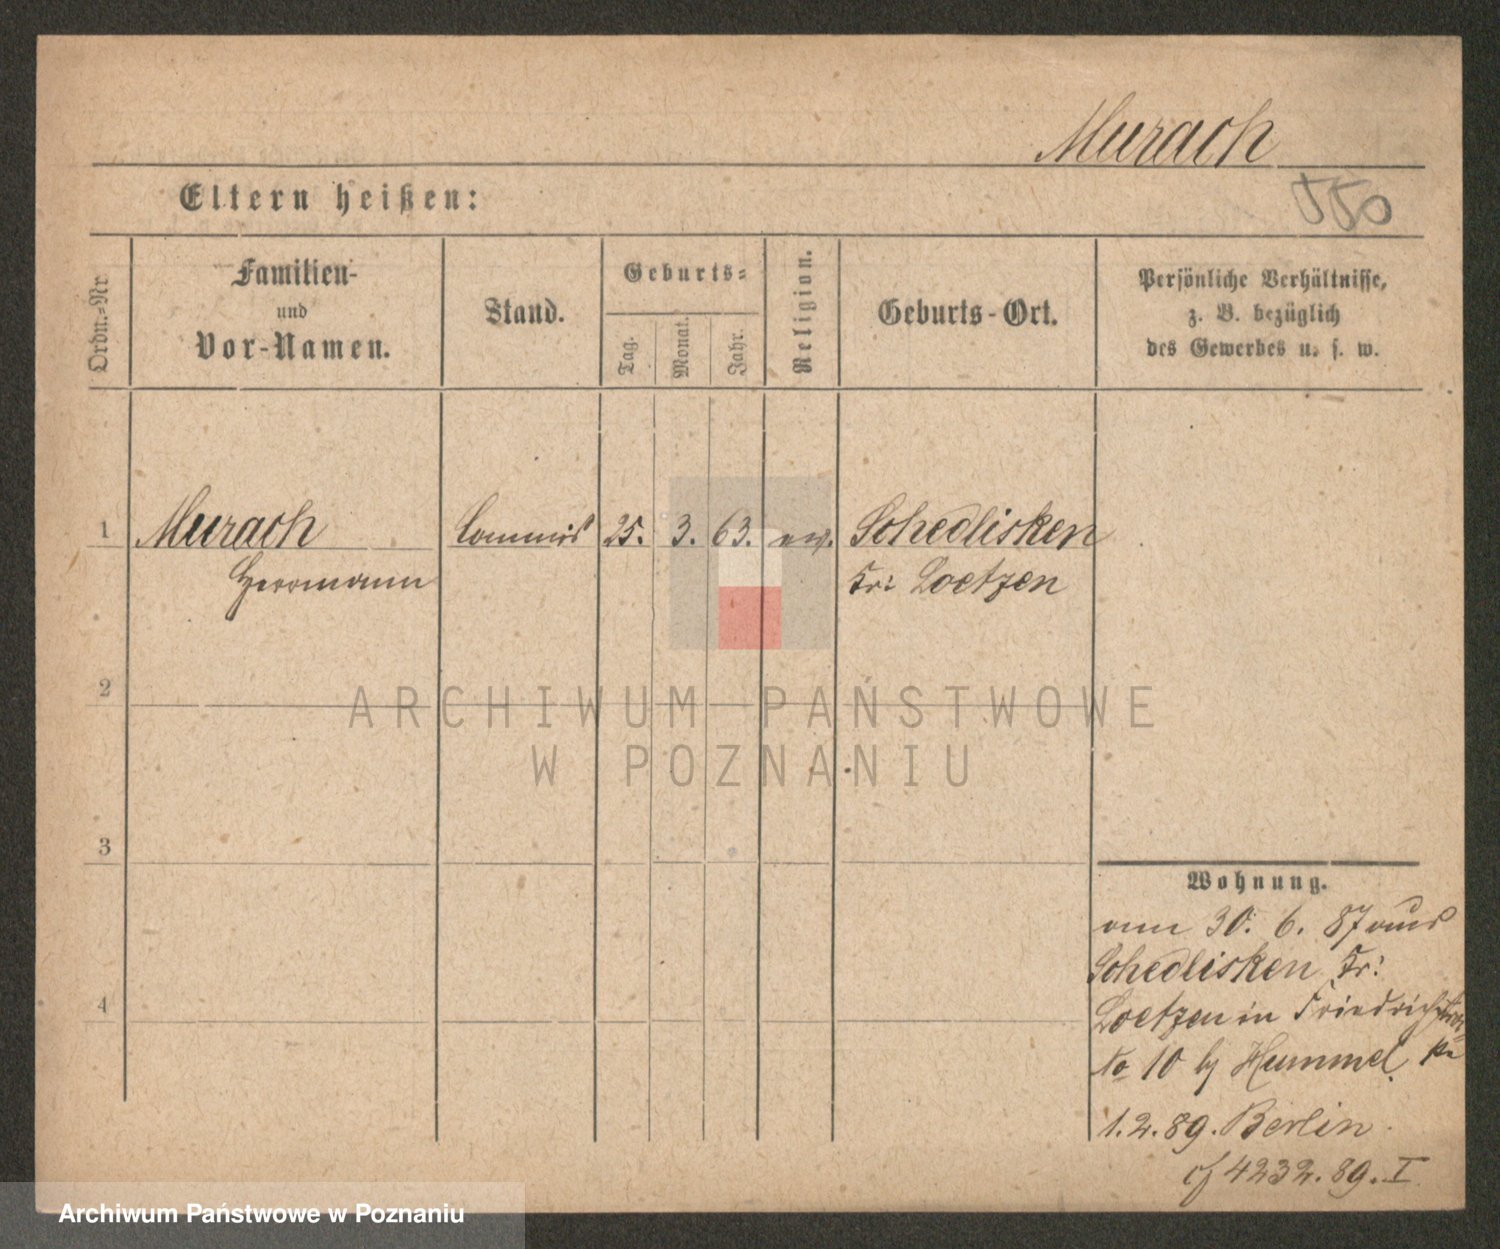 Murach
Eltern heißen:
550
Ordn.-Nr.
Familien-
und
Vor-Namen.
Stand.
Geburts-
Tag.
Monat.
Jahr.
Religion.
Geburts-Ort.
Persönliche Verhältnisse,
z. B. bezüglich
des Gewerbes u. s. w.
1 Murach Commis 25. 3. 63. ev. Schedlisken
Herrmann Kr: Loetzen
2
3
4
Wohnung.
am 30. 6. 87 aus
Schedlisken Kr:
Loetzen in Friedrichstras
No 10 bj Hummel.
1. 2. 89. Berlin
cf 4232. 89. I
ARCHIWUM PAŃSTWOWE
W POZNANIU
Archiwum Państwowe w Poznaniu